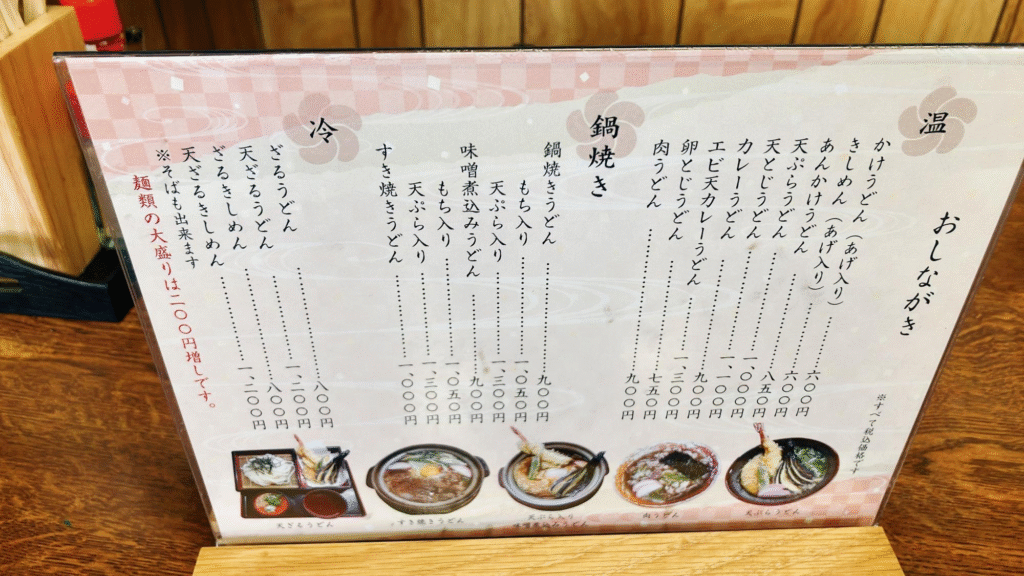 おしながき
※すべて税込価格です
温
かけうどん（あげ入り）………六〇〇円
きしめん（あげ入り）………六〇〇円
あんかけうどん………八五〇円
天ぷらうどん………一、〇〇〇円
天とじうどん………一、一〇〇円
カレーうどん………九〇〇円
エビ天カレーうどん………一、三〇〇円
卵とじうどん………七五〇円
肉うどん………九〇〇円
鍋焼き
鍋焼きうどん………九〇〇円
もち入り………一、〇五〇円
天ぷら入り………一、三〇〇円
味噌煮込みうどん………九〇〇円
もち入り………一、〇五〇円
天ぷら入り………一、三〇〇円
すき焼きうどん………一、〇〇〇円
冷
ざるうどん………八〇〇円
天ざるうどん………一、二〇〇円
ざるきしめん………八〇〇円
天ざるきしめん………一、二〇〇円
※そばも出来ます
麺類の大盛りは二〇〇円増しです。
天ざるうどん
すき焼きうどん
天ぷら入り
味噌煮込みうどん
肉うどん
天ぷらうどん